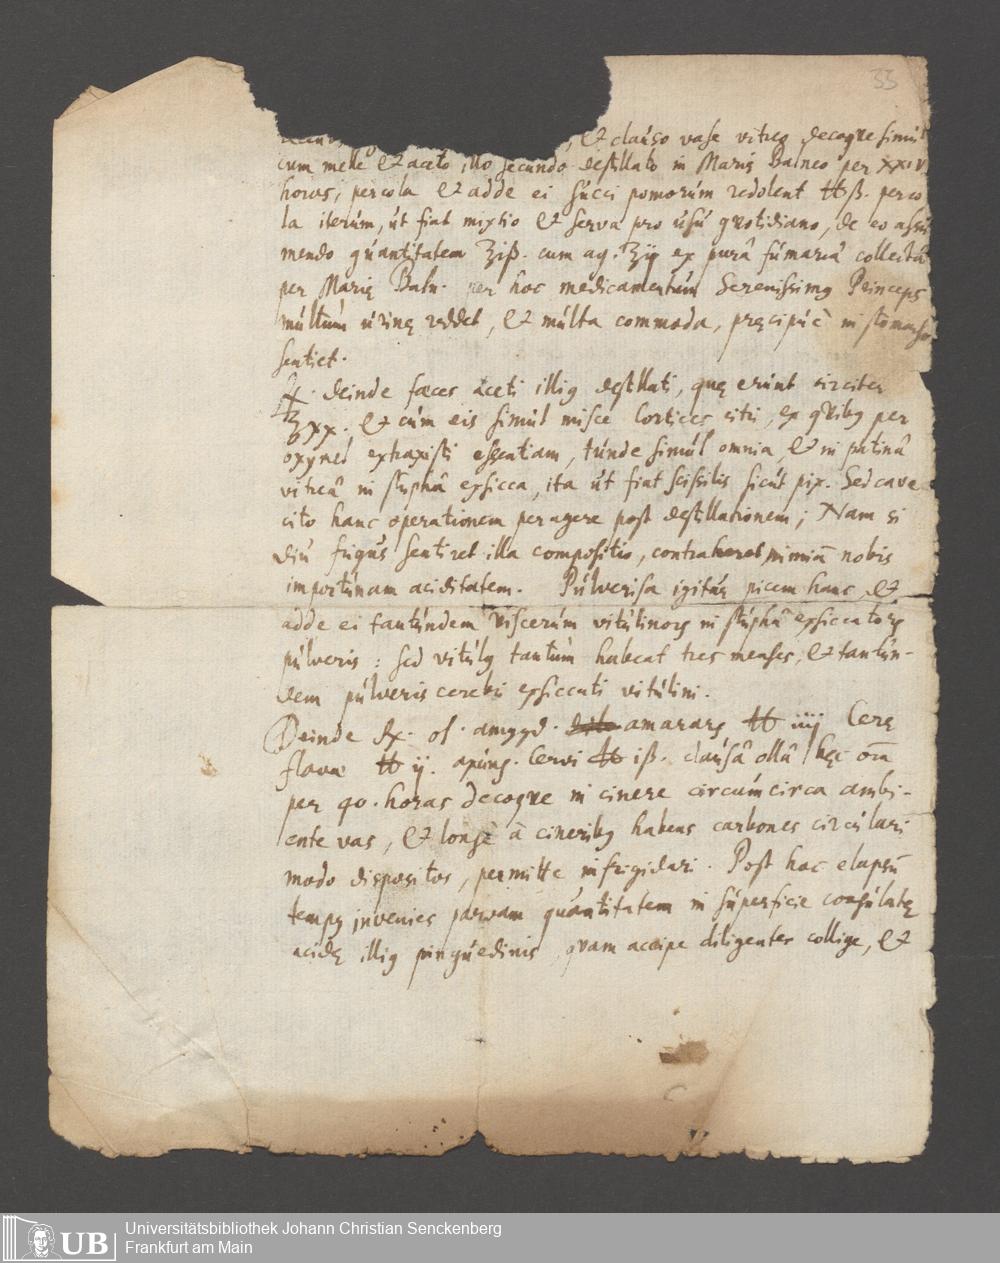 33
, et clauso vase vitreo decoque simul
cum melle et aceto illo secundo destillato in Marię Balneo per XXIV
horas, percola et adde ei succi pomorum redolent ℔ß. perco
la iterum, ut fiat mixtio et serva pro usu quotidiano, de eo assu
mendo quantitatem ℥iß. cum aq. ℥ij ex purâ fumariâ collectâ
per Marię Baln. per hoc medicamentum Serenissimꝰ Princeps
multum urinę reddet, et multa commoda, pręcipuè in stomacho
sentiet.
℞. deinde fæces aceti illiꝰ destillati, quę erunt circiter
℥xx. et cum eis simul misce Cortices citri, ex quibꝰ per
oxymel extraxisti essentiam, tunde simul omnia, et in patinâ
vitreâ in stuphâ exsicca, ita ut fiat scissilis sicut pix. Sed cave
cito hanc operationem peragere post destillationem; Nam si
diu frigus sentiret illa compositio, contraheret nimiã nobis
importunam aciditatem. Pulverisa igitur picem hanc, et
adde ei tantundem viscerum vitulinorꝫ in stuphâ exsiccatorꝫ
pulveris: sed vitulꝰ tantùm habeat tres menses, et tantun-
dem pulveris cerebri exsiccati vitulini.
Deinde ℞. ol. amygd. amararꝫ ℔ iiij Cerę
flavæ ℔ ij. axung. Cervi ℔ iß. clausâ ollâ hęc oĩa
per 40. horas decoque in cinere circumcirca ambi-
ente vas, et longè à cineribꝰ habens carbones circulari
modo dispositos, permitte infrigidari. Post hoc elapsũ
tempꝰ invenies parvam quantitatem in superficie coagulatę
acidę illiꝰ pinguedinis, quam accipe diligenter collige, et
UB
Universitätsbibliothek Johann Christian Senckenberg
Frankfurt am Main